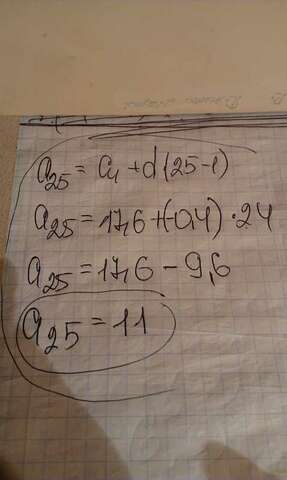 a₂₅ = a₁ + d(25-1)
a₂₅ = 17,6 + (-0,4) · 24
a₂₅ = 17,6 - 9,6
a₂₅ = 11